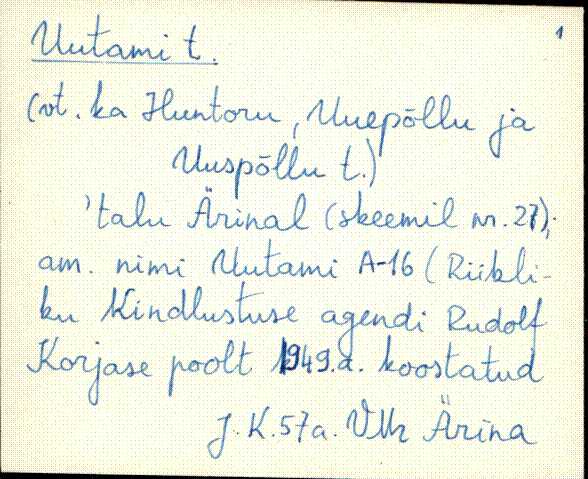 1
Uutami t.
(vt. ka Huntoru, Uuepõllu ja
Uuspõllu t.)
'talu Ärinal (skeemil nr. 27);
am. nimi Uutami A-16 (Riikli-
ku Kindlustuse agendi Rudolf
Korjase poolt 1949.a. koostatud
J.K.57a. VMr Ärina